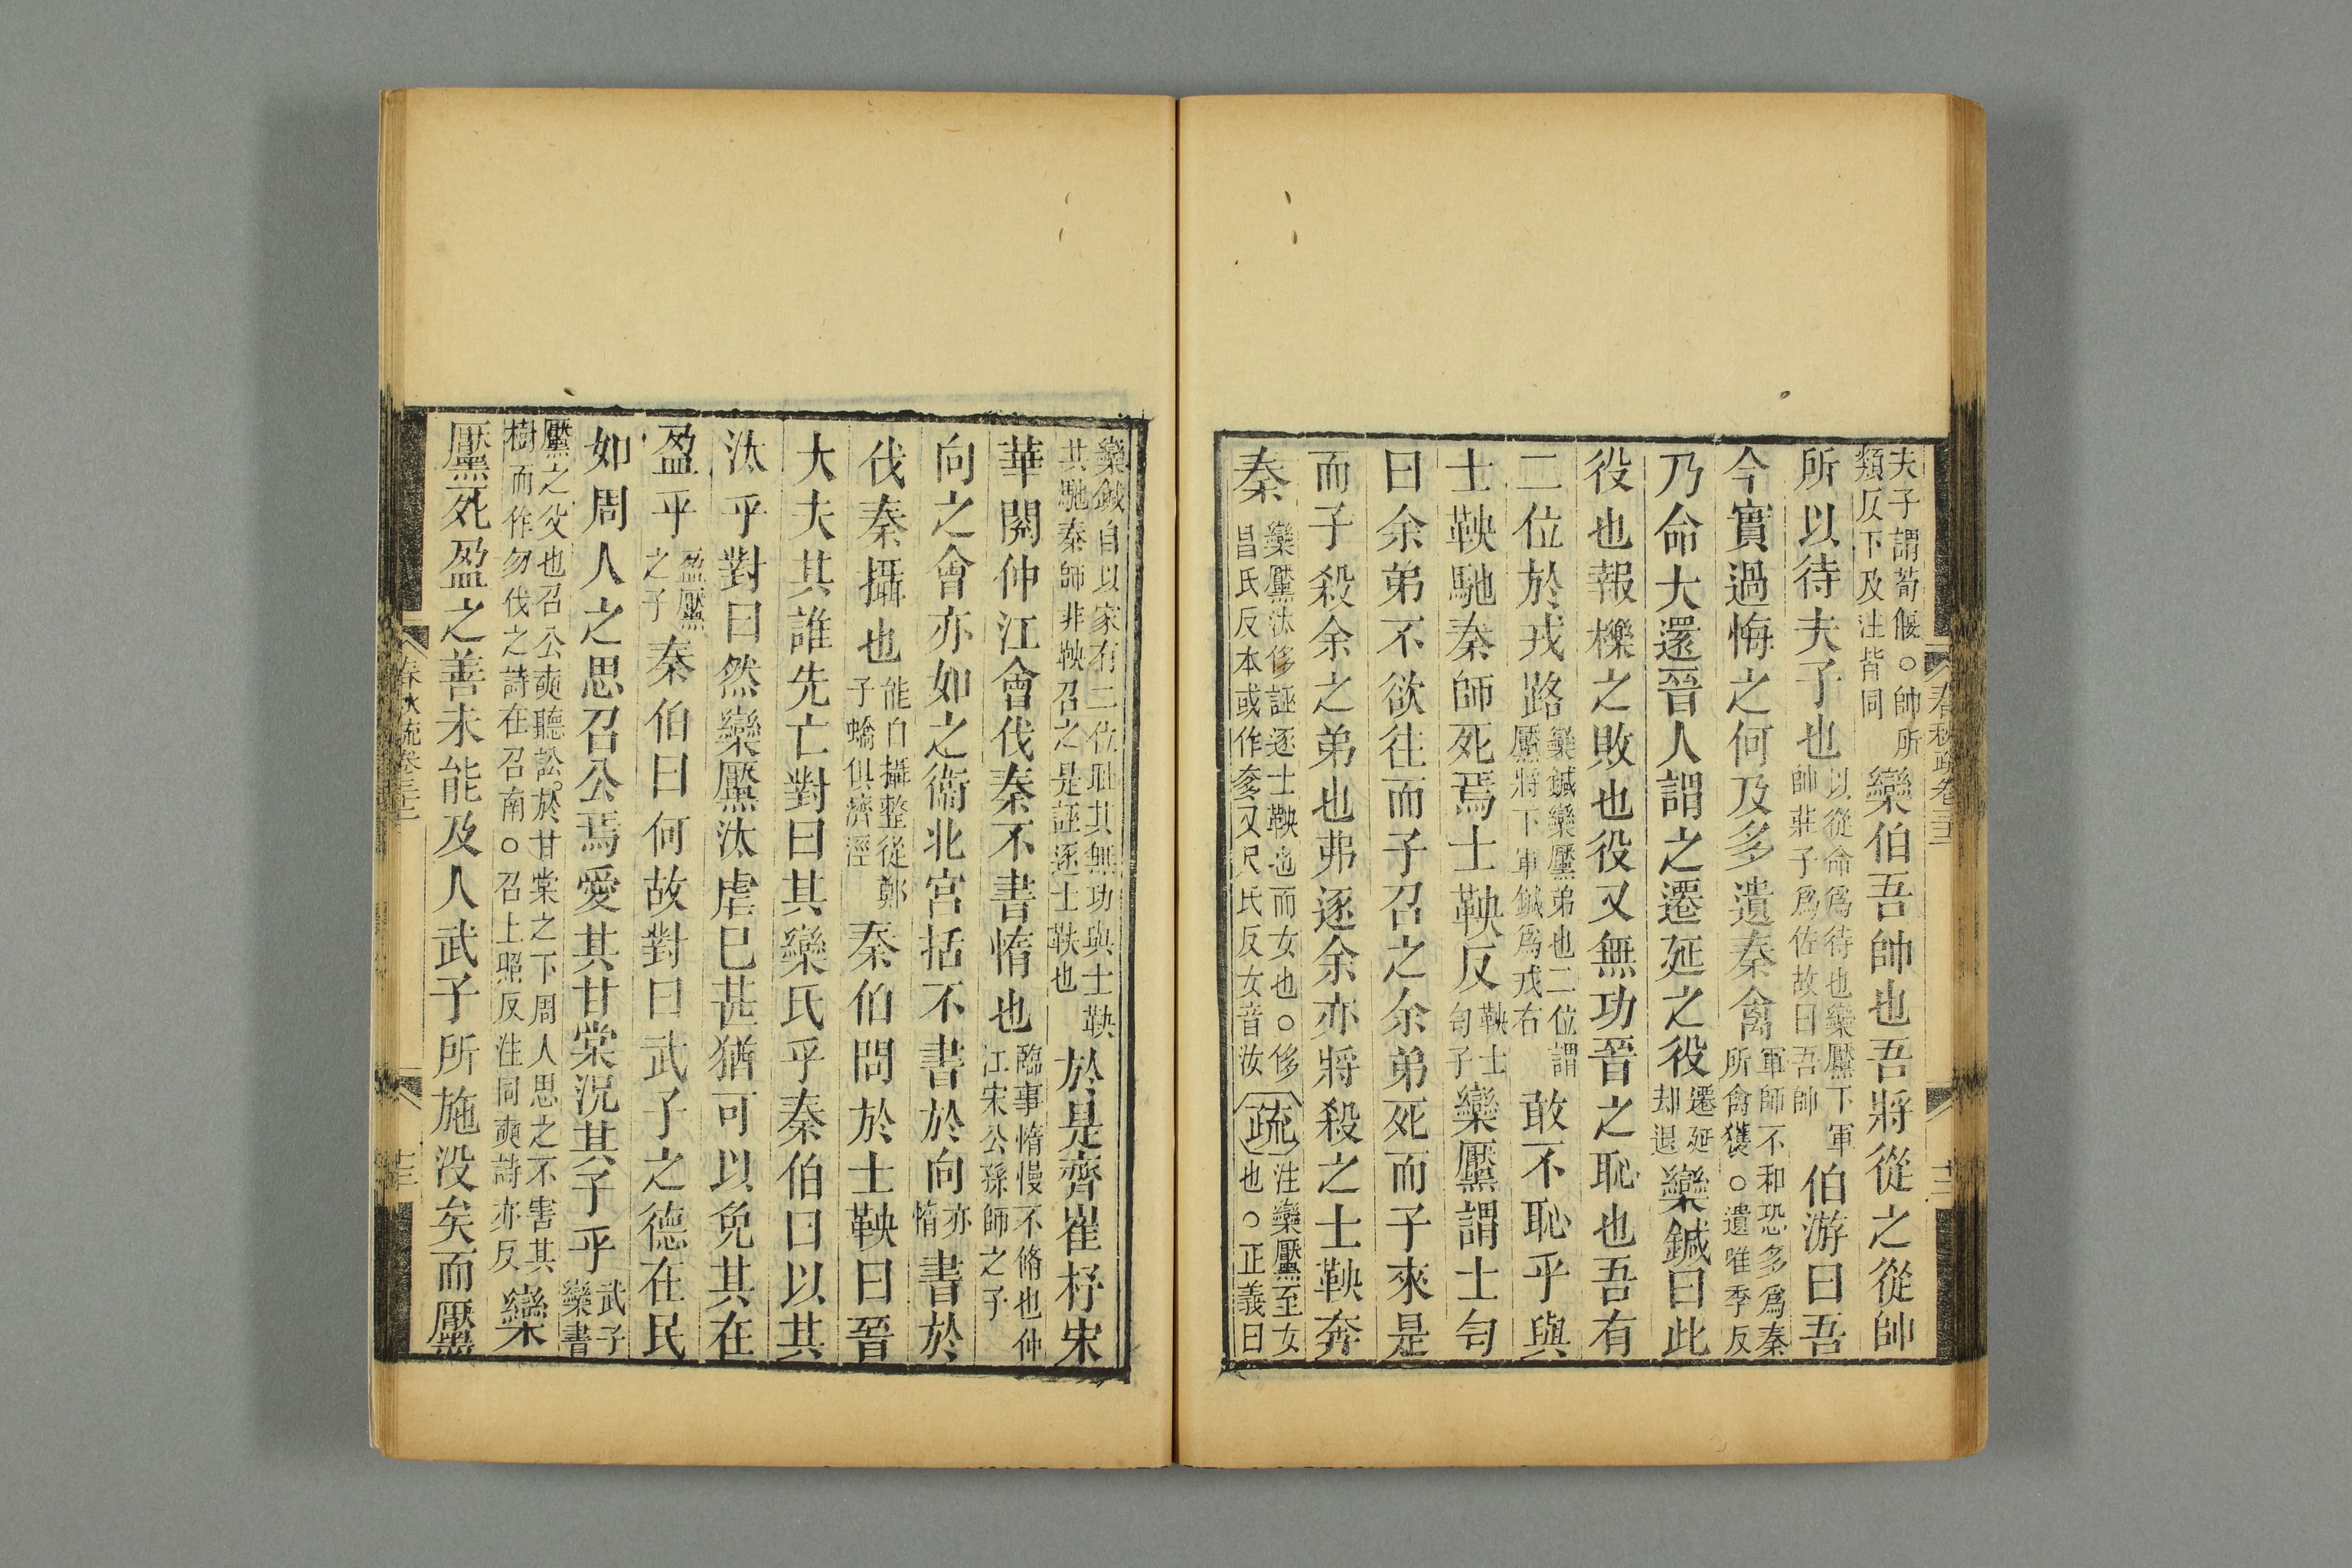 夫子謂荀偃○帥所
類反下及注皆同
欒伯吾帥也吾將從之從帥
所以待夫子也
以從命爲待也欒黶下軍
帥莊子爲佐故曰吾帥
伯游曰吾
今實過悔之何及多遺秦禽
軍師不和恐多爲秦
所禽獲○遺唯季反
乃命大還晉人謂之遷延之役
遷延
却退
欒鍼曰此
役也報櫟之敗也役又無功晉之恥也吾有
二位於戎路
欒鍼欒黶弟也二位謂
黶將下軍鍼爲戎右
敢不恥乎與
士鞅馳秦師死焉士鞅反
鞅士
匄子
欒黶謂士匄
曰余弟不欲往而子召之余弟死而子來是
而子殺余之弟也弗逐余亦將殺之士鞅奔
秦
欒黶汰侈誣逐士鞅也而女也○侈
昌氏反本或作奓又尺氏反女音汝
疏
注欒黶至女
也○正義曰
欒鍼自以家有二位恥其無功與士鞅
共馳秦師非鞅召之是誣逐士鞅也
於是齊崔杼宋
華閱仲江會伐秦不書惰也
臨事惰慢不脩也仲
江宋公孫師之子
向之會亦如之衞北宮括不書於向
亦
惰
書於
伐秦攝也
能自攝整從鄭
子蟜俱濟涇
秦伯問於士鞅曰晉
大夫其誰先亡對曰其欒氏乎秦伯曰以其
汰乎對曰然欒黶汰虐已甚猶可以免其在
盈乎
盈黶
之子
秦伯曰何故對曰武子之德在民
如周人之思召公焉愛其甘棠況其子乎
武子
欒書
黶之父也召公奭聽訟於甘棠之下周人思之不害其
樹而作勿伐之詩在召南○召上照反注同奭詩亦反
欒
黶死盈之善未能及人武子所施没矣而黶